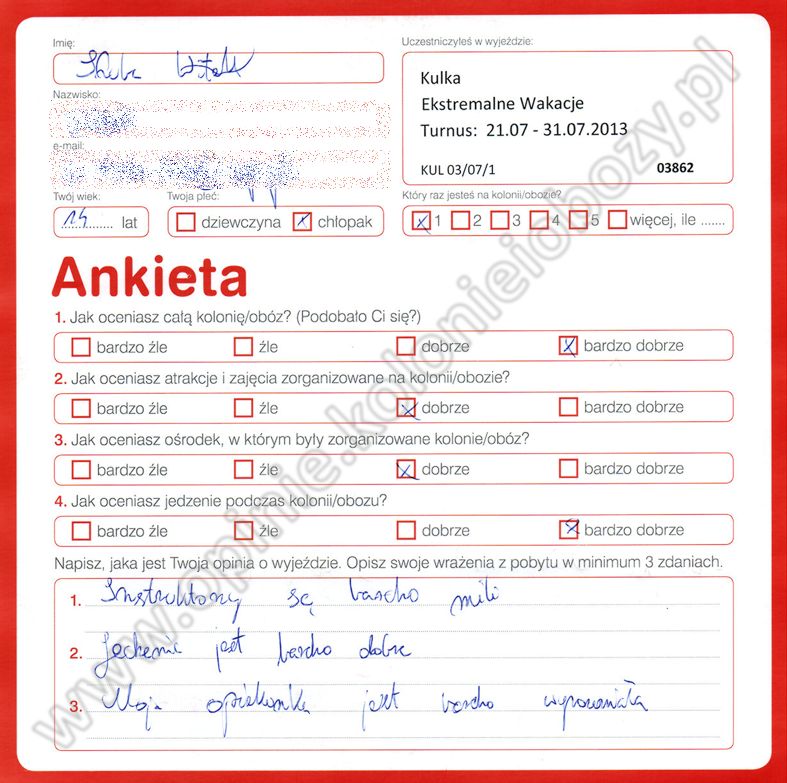 Imię:
Uczestniczyłeś w wyjeździe:
Kulka
Ekstremalne Wakacje
Turnus: 21.07 - 31.07.2013
KUL 03/07/1 03862
Nazwisko:
e-mail:
Twój wiek: Twoja płeć: Który raz jesteś na kolonii/obozie?
14 lat dziewczyna chłopak 1 2 3 4 5 więcej, ile .......
Ankieta
1. Jak oceniasz całą kolonię/obóz? (Podobało Ci się?)
bardzo źle źle dobrze bardzo dobrze
2. Jak oceniasz atrakcje i zajęcia zorganizowane na kolonii/obozie?
bardzo źle źle dobrze bardzo dobrze
3. Jak oceniasz ośrodek, w którym były zorganizowane kolonie/obóz?
bardzo źle źle dobrze bardzo dobrze
4. Jak oceniasz jedzenie podczas kolonii/obozu?
bardzo źle źle dobrze bardzo dobrze
Napisz, jaka jest Twoja opinia o wyjeździe. Opisz swoje wrażenia z pobytu w minimum 3 zdaniach.
1. Instruktorzy są bardzo mili
2. jest bardzo dobre
3. Moja opiekunka jest bardzo
www.opinie.kolonieiobozy.pl